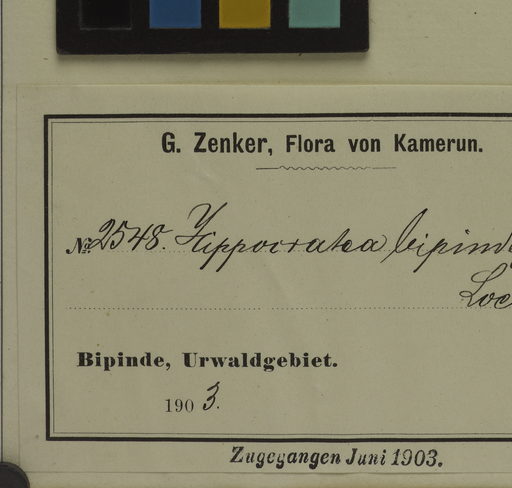 G. Zenker, Flora von Kamerun.
No. 2548. Hippocratea bipind
Loe
Bipinde, Urwaldgebiet.
1903.
Zugegangen Juni 1903.